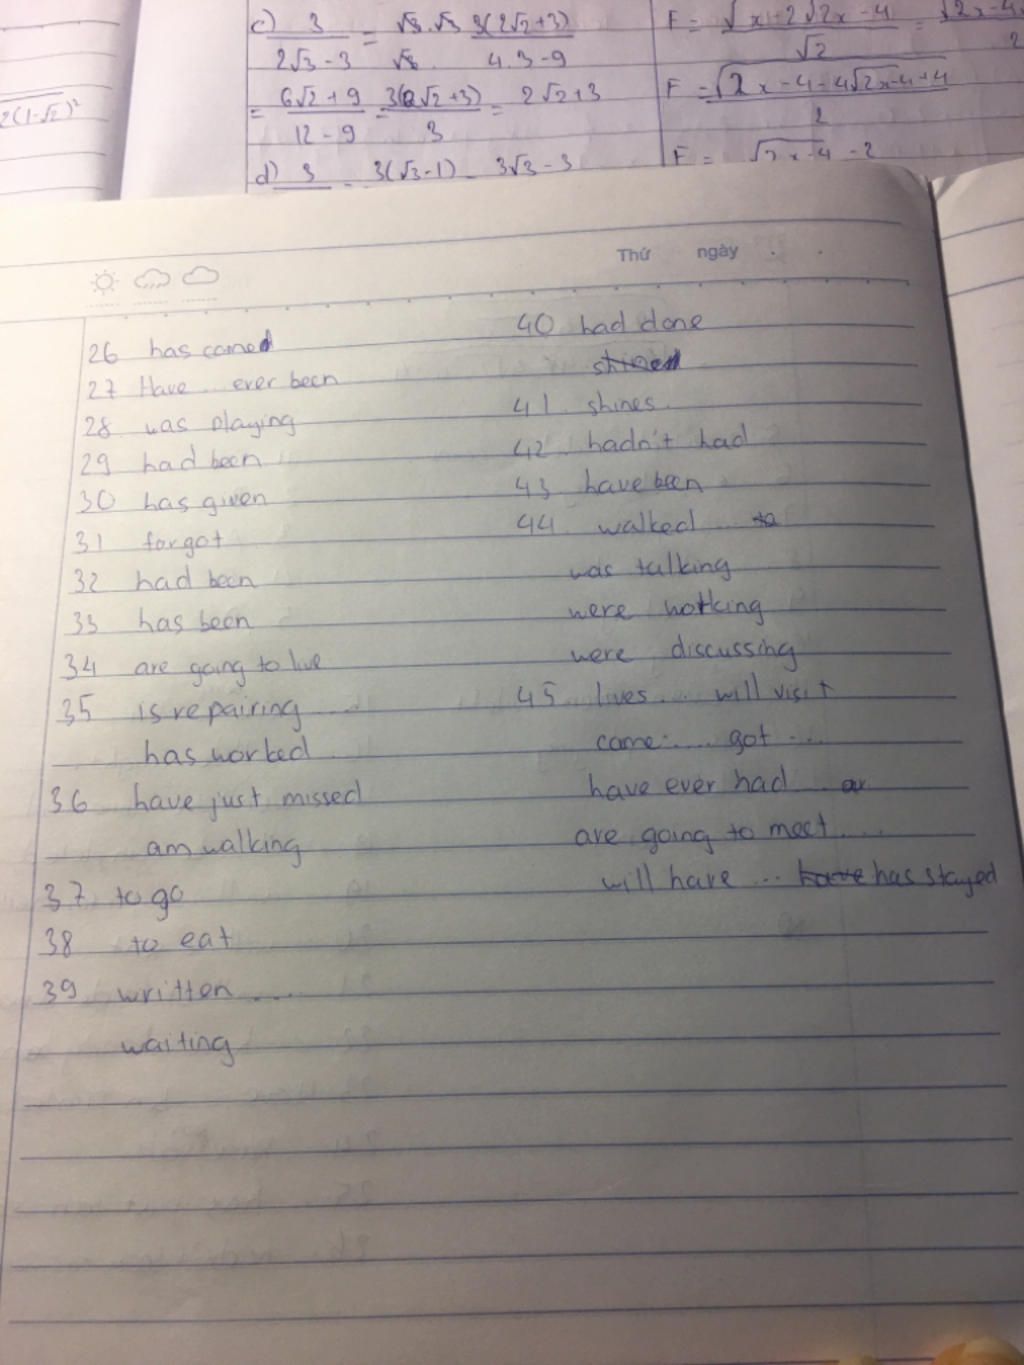 c) 3 / 2√3 - 3 = √3.√3 / √3. 3(2√2+3) / 4.3-9
= 6√2+9 / 12-9 = 3(2√2+3) / 3 = 2√2+3
d) 3 = 3(√3-1) = 3√3-3
2(1-√2)²
F = √x+2√2x-4 / √2 = √2x-4 / 2
F = √2x-4-4√2x-4+4 / 2
F = √2x-4 -2
Thứ ngày
26 has comed
27 Have ... ever been
28 was playing
29 had been
30 has given
31 forgot
32 had been
33 has been
34 are going to live
35 is repairing ...
has worked ...
36 have just missed
am walking
37 to go
38 to eat
39 written ....
waiting
40 had done
shined
41 shines
42 hadn't had
43 have been
44 walked ... to
was talking
were working
were discussing
45 lives ... will visit
came ..... got ...
have ever had ... ar
are going to meet ....
will have ... have has stayed